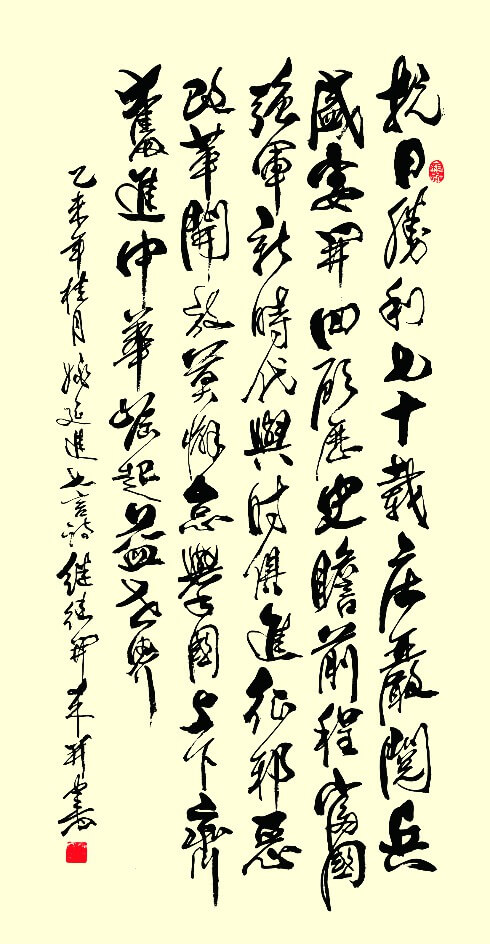 抗日勝利七十載庄嚴閱兵
盛宴開回顧歷史瞻前程富國
強軍新時代與時俱進征邪惡
改革開放莫懈怠舉國上下齊
奮進中華崛起益世界
乙未年桂月延進七言詩继往開来并書